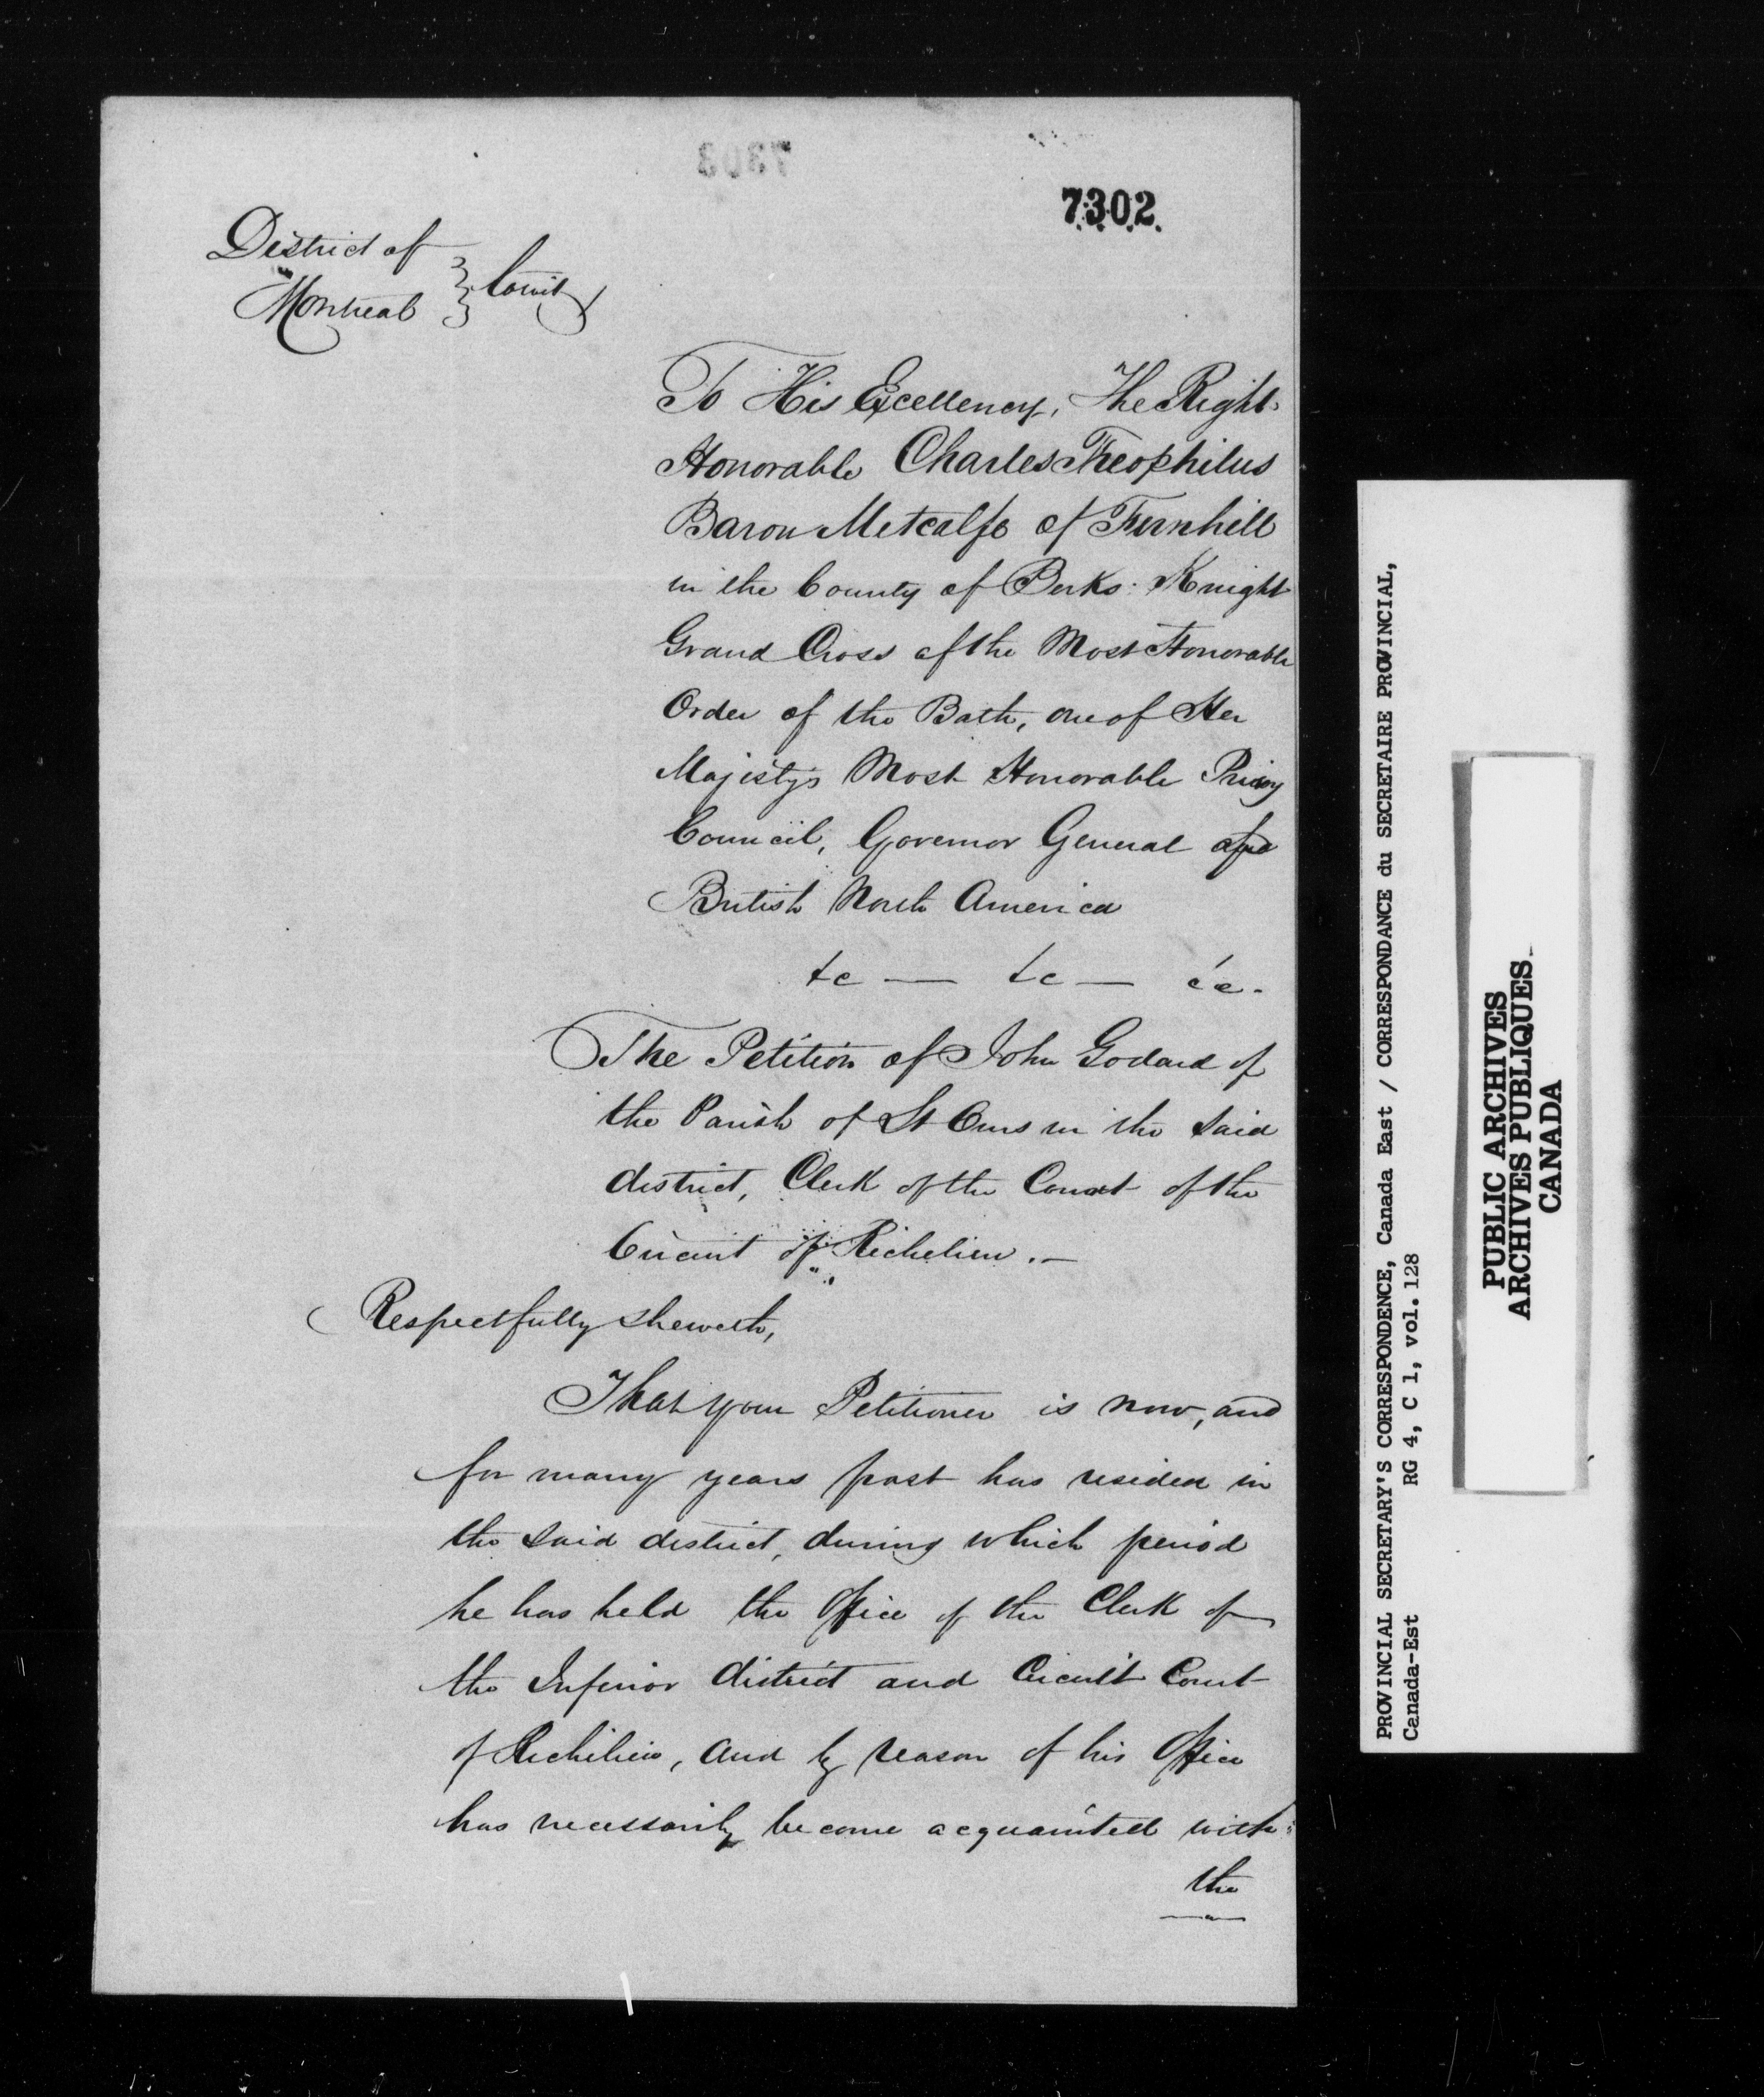 7302
District of
Montreal } to wit
To His Excellency, The Right
Honorable Charles Theophilus
Baron Metcalfe of Fernhill
in the County of Berks: Knight
Grand Cross of the Most Honorable
Order of the Bath, one of Her
Majesty's Most Honorable Privy
Council, Governor General of
British North America
&c — &c — &c.
The Petition of John Godard of
the Parish of St Ours in the said
district, Clerk of the Court of the
Circuit of Richelieu.—
Respectfully sheweth,
That your Petitioner is now, and
for many years past has resided in
the said district, during which period
he has held the Office of the Clerk of
the Inferior district and Circuit Court
of Richelieu, and by reason of his Office
has necessarily become acquainted with
the
PROVINCIAL SECRETARY'S CORRESPONDENCE, Canada East / CORRESPONDANCE du SECRETAIRE PROVINCIAL,
Canada-Est RG 4, C 1, vol. 128
PUBLIC ARCHIVES
ARCHIVES PUBLIQUES
CANADA